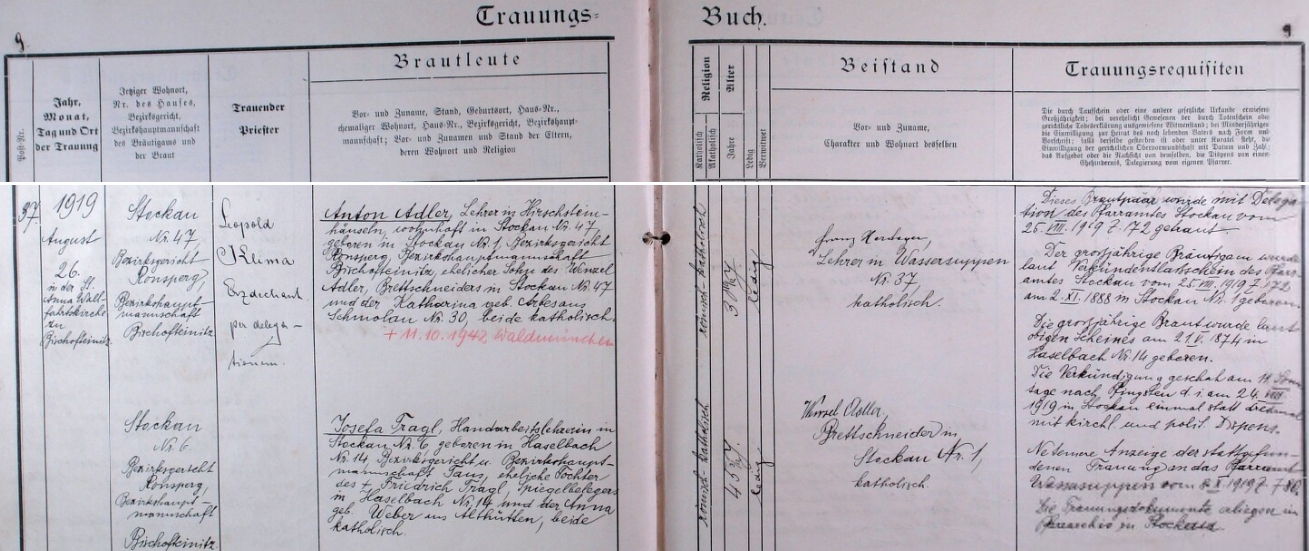 Trauungs-
Buch.
9
9
Post-Nr.
Jahr,
Monat,
Tag und Ort
der Trauung
Jetziger Wohnort,
Nr. des Hauses,
Bezirksgericht,
Bezirkshauptmannschaft
des Bräutigams und
der Braut
Trauender
Priester
Brautleute
Vor- und Zuname, Stand, Geburtsort, Haus-Nr.,
ehemaliger Wohnort, Haus-Nr., Bezirksgericht, Bezirkshaupt-
mannschaft; Vor- und Zunamen und Stand der Eltern,
deren Wohnort und Religion
Religion
Katholisch
Akatholisch
Alter
Jahre
Ledig
Verwitwet
Beistand
Vor- und Zuname,
Charakter und Wohnort desselben
Trauungsrequisiten
Die durch Taufschein oder eine andere gesetzliche Urkunde erwiesene
Großjährigkeit; bei verehelicht Gewesenen der durch Totenschein oder
gerichtliche Todeserklärung ausgewiesene Witwenstand; bei Minderjährigen
die Einwilligung zur Heirat des noch lebenden Vaters nach Form und
Vorschrift; falls derselbe gestorben ist oder unter Kuratel steht, die
Einwilligung der gerichtlichen Obervormundschaft mit Datum und Zahl;
das Aufgebot oder die Nachsicht von demselben, die Dispens von einem
Ehehindernis, Delegierung vom eigenen Pfarrer.
37.
1919
August
26.
in der St.
Anna Wall-
fahrtskirche
zu
Bischofteinitz.
Stockau
Nr. 47,
Bezirksgericht
Ronsperg,
Bezirkshaupt-
mannschaft
Bischofteinitz
Leopold
Klima
Erzdechant
per delega-
tionem.
Anton Adler, Lehrer in Hirschstein-
häuseln, wohnhaft in Stockau Nr. 47,
geboren in Stockau Nr. 1, Bezirksgericht
Ronsperg, Bezirkshauptmannschaft
Bischofteinitz, ehelicher Sohn des Wenzel
Adler, Brettschneiders in Stockau Nr. 47
und der Katharina geb. aus
Schmolau Nr. 30, beide katholisch.
+ 11.10.1942 Waldmünchen
römisch-katholisch
ledig
Franz
Lehrer in Wassersuppen
Nr. 37
katholisch.
Dieses Brautpaar wurde mit Delega-
tion des Pfarramtes Stockau vom
25. VIII. 1919 Z. 172 getraut.
Der großjährige Bräutigam wurde
laut Verkündentlaßschein des Pfarr-
amtes Stockau vom 25. VIII. 1919 Z. 172
am 2. XI. 1888 in Stockau Nr. 1 geboren.
Die großjährige Braut wurde laut
obigen Scheines am 21. V. 1874 in
Haselbach Nr. 14 geboren.
Die Verkündigung geschah am 11. Sonn-
tage nach Pfingsten d. i. am 24. VIII.
1919 in Stockau einmal statt dreimal
mit kirchl. und polit. Dispens.
Stockau
Nr. 6.
Bezirksgericht
Ronsperg,
Bezirkshaupt-
mannschaft
Bischofteinitz.
Josefa Tragl, Handarbeitslehrerin in
Stockau Nr. 6, geboren in Haselbach
Nr. 14, Bezirksgericht u. Bezirkshaupt-
mannschaft Taus, eheliche Tochter
des + Friedrich Tragl, Spiegelbelegers
in Haselbach Nr. 14 und der Anna
geb. Weber aus Althütten, beide
katholisch.
römisch-katholisch
ledig
Wenzel Adler,
Brettschneider in
Stockau Nr. 1,
katholisch.
Anzeige der stattgefun-
denen Trauung an das Pfarramt
Wassersuppen vom
Die Trauungsdokumente erliegen im
Pfarrarchiv zu Stockau.